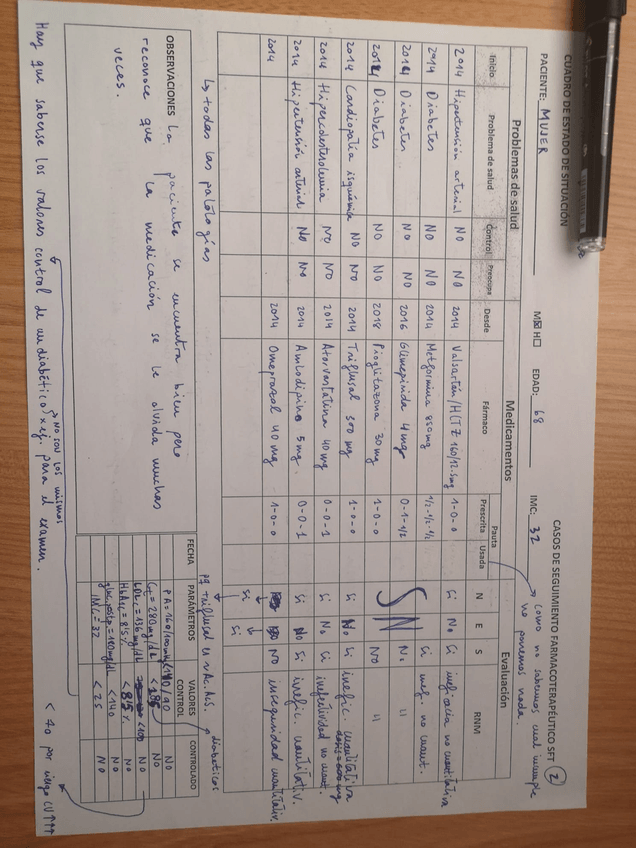 CUADRO DE ESTADO DE SITUACIÓN
CASOS DE SEGUIMIENTO FARMACOTERAPÉUTICO SFT 2
PACIENTE: MUJER M☒ H☐ EDAD: 68 IMC: 32
como no sabemos cual incumple no ponemos nada.
Problemas de salud Medicamentos Evaluación
Inicio Problema de salud Control Preocupa Desde Fármaco Pauta Prescrita Usada N E S RNM
2014 Hipertensión arterial NO NO 2014 Valsartán/HCTZ 160/12.5mg 1-0-0 Si No Si
2014 Diabetes NO NO 2014 Metformina 850mg 1/2-1/2-1/2 Si inef. no cuant.
2014 Diabetes NO NO 2016 Glimepirida 4mg 0-1-1/2 No "
2014 Diabetes NO NO 2018 Pioglitazona 30mg 1-0-0 NO "
2014 Cardiopatía isquémica NO NO 2014 Triflusal 300 mg 1-0-0 Si No Si inefic. cuantitativa
2014 Hipercolesterolemia NO NO 2014 Atorvastatina 40mg 0-0-1 Si No Si inefectividad no cuant.
2014 Hipertensión arterial NO NO 2014 Amlodipino 5mg. 0-0-1 Si No Si inefic. cuantitativ.
2014 2014 Omeprazol 40mg 1-0-0 NO inseguridad cuantitativ.
Si Si
↳ todas las patologías
pq triflusal es

OBSERVACIONES La paciente se encuentra bien pero
reconoce que la medicación se le olvida muchas
veces.
FECHA PARÁMETROS VALORES CONTROL CONTROLADO
diabeticos
PA = 160/100mmHg NO
= 280mg/dL NO
= 136mg/dL <100 NO
HbA1c = 8.5% NO
= 180mg/dL <140 NO
IMC = 32 <25 NO
< 70 por riesgo CV ↑↑↑
↳ NO son los mismos
Hay que saberse los valores control de un diabético x ej. para el examen.